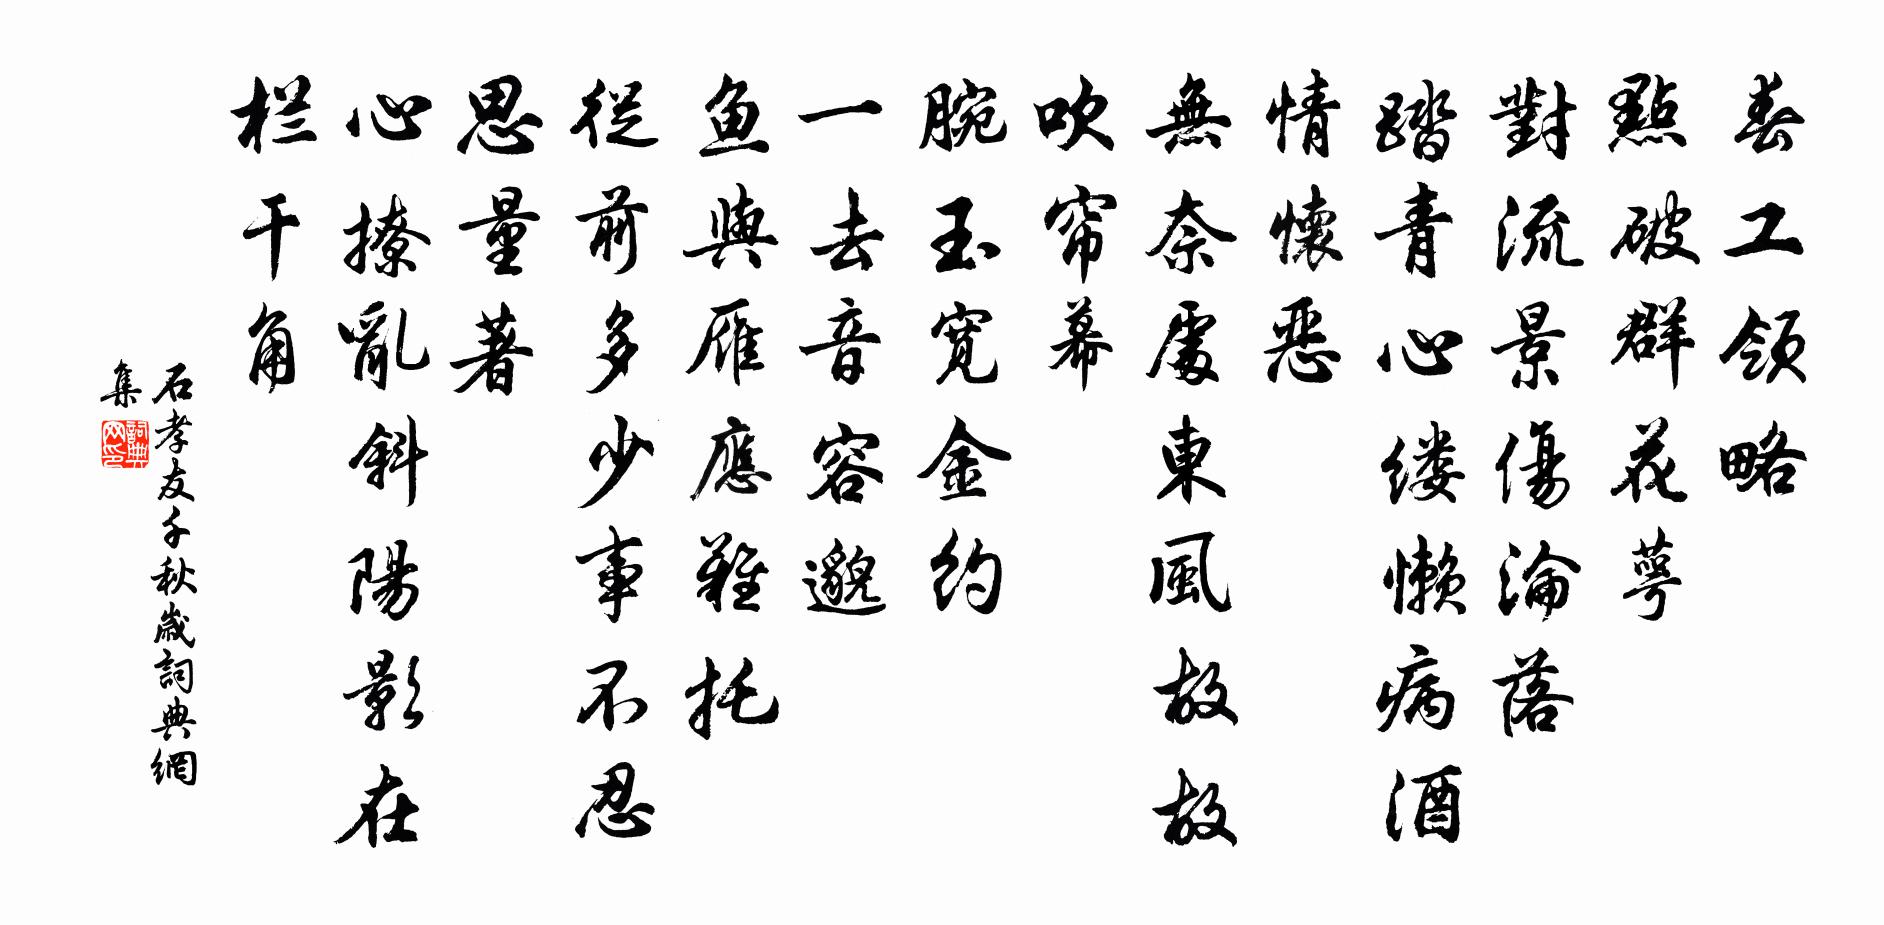 春工領略
點破群花萼
對流景傷淪落
踏青心缕懒病酒
情懷惡
無奈處東風故故
吹帘幕
腕玉宽金約
一去音容邈
鱼與雁應難托
從前多少事不忍
思量著
心撩亂斜陽影在
栏干角
石孝友千秋歲詞典網
集
詞典
网印